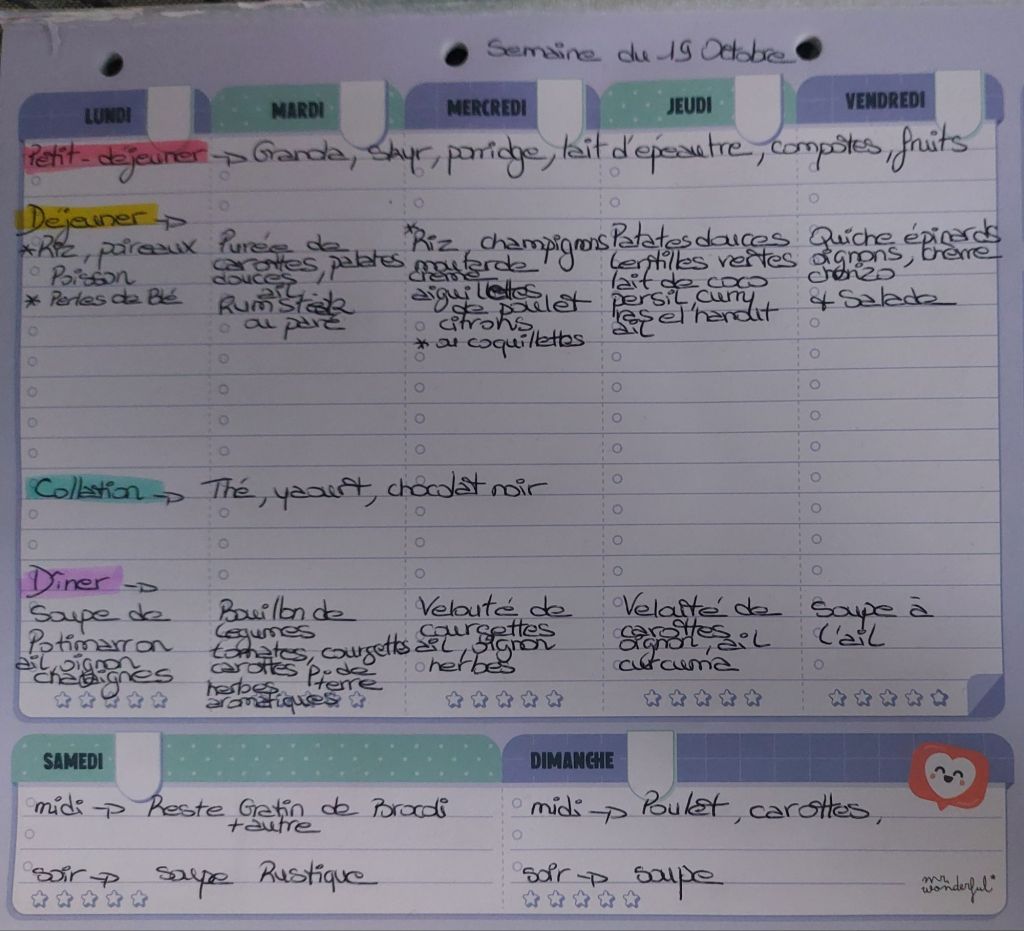 Semaine du 19 Octobre
LUNDI
MARDI
MERCREDI
JEUDI
VENDREDI
Petit-déjeuner → Granola, skyr, porridge, lait d'épeautre, compotes, fruits
Déjeuner →
* Riz, poireaux
Poisson
* Perles de Blé
Purée de
carottes, patates
douces,
ail
Rumsteak
ou paré
* Riz, champignons
moutarde
crème
aiguillettes
de poulet
citrons
* ou coquillettes
Patates douces
lentilles vertes
lait de coco
persil, curry
ail
Quiche épinards
oignons, chèvre
chorizo
& Salade
Collation → Thé, yaourt, chocolat noir
Dîner →
Soupe de
Potimarron
ail, oignon
chataignes
Bouillon de
legumes
tomates, courgettes
carottes p. de
terre
herbes
aromatiques
Velouté de
courgettes
ail, oignon
herbes
Velouté de
carottes
oignon, ail
curcuma
Soupe à
l'ail
SAMEDI
midi → Reste Gratin de
+ autre
soir → soupe Rustique
DIMANCHE
midi → Poulet, carottes,
soir → soupe
mr.
wonderful*